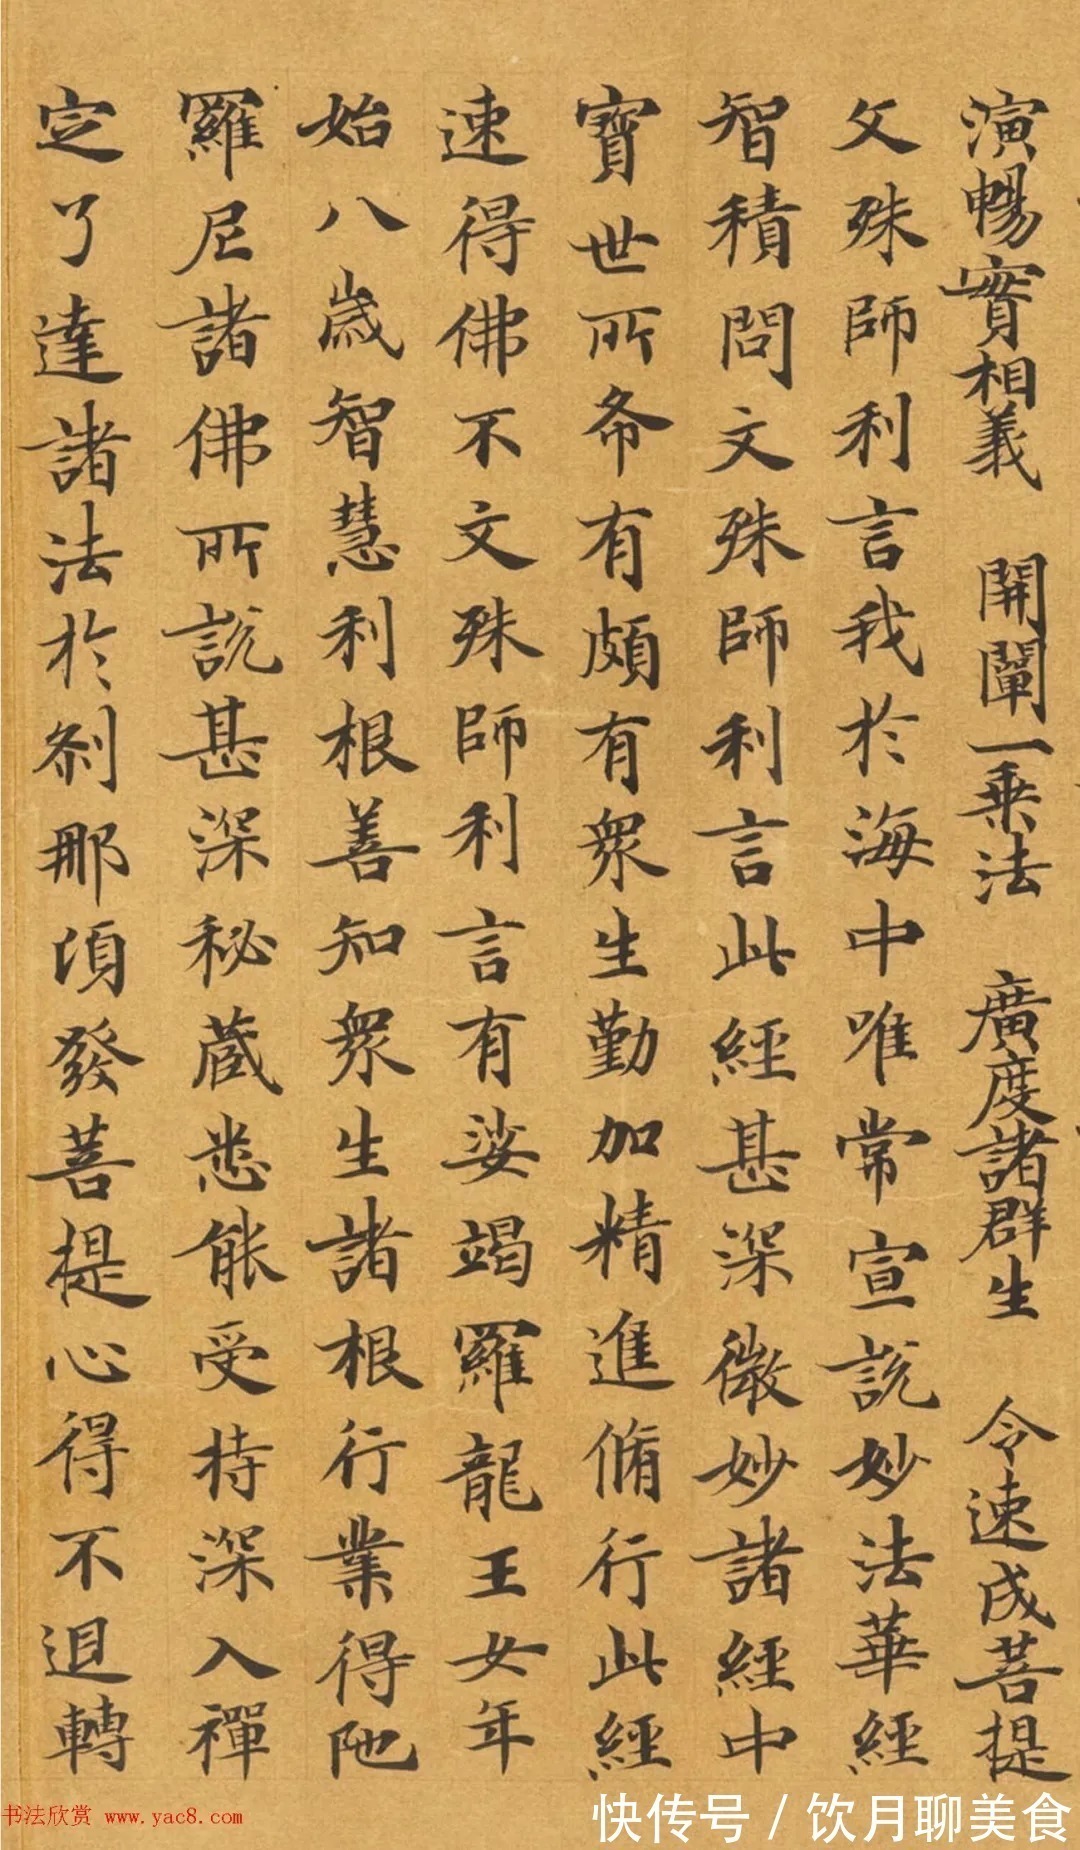 演暢實相義　開闡一乗法　廣度諸群生　令速成菩提
文殊師利言我於海中唯常宣說妙法華經
智積問文殊師利言此經甚深微妙諸經中
寶世所希有頗有衆生勤加精進脩行此經
速得佛不文殊師利言有娑竭羅龍王女年
始八歲智慧利根善知衆生諸根行業得陁
羅尼諸佛所說甚深秘蔵悉能受持深入禪
定了達諸法於刹那頃發菩提心得不退轉
书法欣赏 www.yac8.com
快传号 / 饮月聊美食